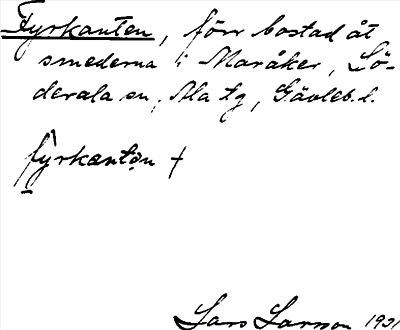 Fyrkanten, förr bostad åt
smederna i Maråker, Sö-
derala sn, Ala tg, Gävleb. l.
fy̱rkantən +
Lars Larsson 1931